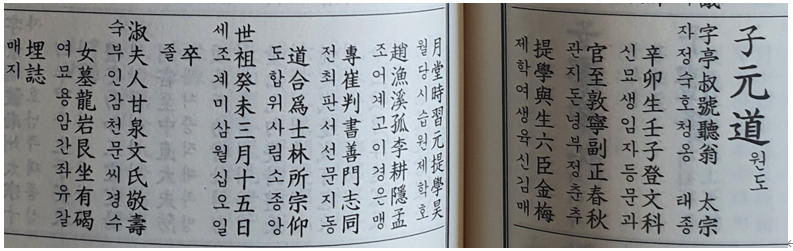 子元道 원도
字亭叔號聽翁 太宗
자정숙호청옹 태종
辛卯生壬子登文科
신묘생임자등문과
官至敦寧副正春秋
관지돈녕부정춘추
提學與生六臣金梅
제학여생육신김매
月堂時習元提學昊
월당시습원제학호
趙漁溪孤李耕隱孟
조어계고이경은맹
專崔判書善門志同
전최판서선문지동
道合爲士林所宗仰
도합위사림소종앙
世祖癸未三月十五日
세조계미삼월십오일
卒
졸
淑夫人甘泉文氏敬壽
숙부인감천문씨경수
女墓龍岩艮坐有碣
여묘용암간좌유갈
埋誌
매지